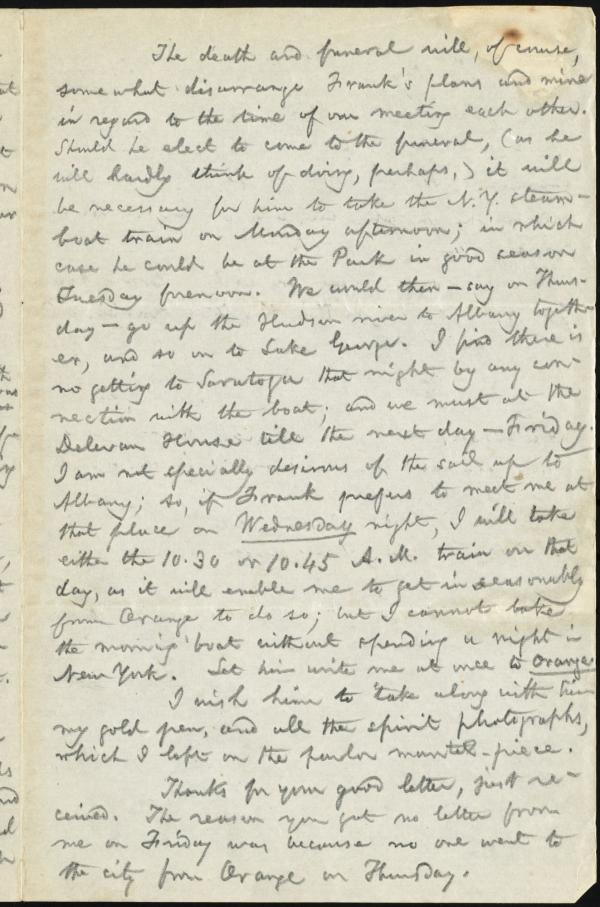 The death and funeral will, of course,
somewhat disarrange Frank's plans and mine
in regard to the time of our meeting each other.
Should he elect to come to the funeral, (as he
will hardly think of doing, perhaps,) it will
be necessary for him to take the N.Y. steam-
boat train on Monday afternoon; in which
case he could be at the Park in good season
Tuesday forenoon. We could then—say on Thurs-
day—go up the Hudson river to Albany togeth-
er, and so on to Lake George. I find there is
no getting to Saratoga that night by any con-
nection with the boat; and we must at the
Delevan House till the next day—Friday.
I am not specially desirous of the sail up to
Albany; so, if Frank prefers to meet me at
that place on Wednesday night, I will take
either the 10.30 or 10.45 A.M. train on that
day, as it will enable me to get in seasonably
from Orange to do so; but I cannot take
the morning boat without spending a night in
New York. Let him write me at once to Orange.
I wish him to take along with him
my gold pen, and all the spirit photographs,
which I left on the parlor mantel-piece.
Thanks for your good letter, just re-
ceived. The reason you got no letter from
me on Friday was because no one went to
the city from Orange on Thursday.